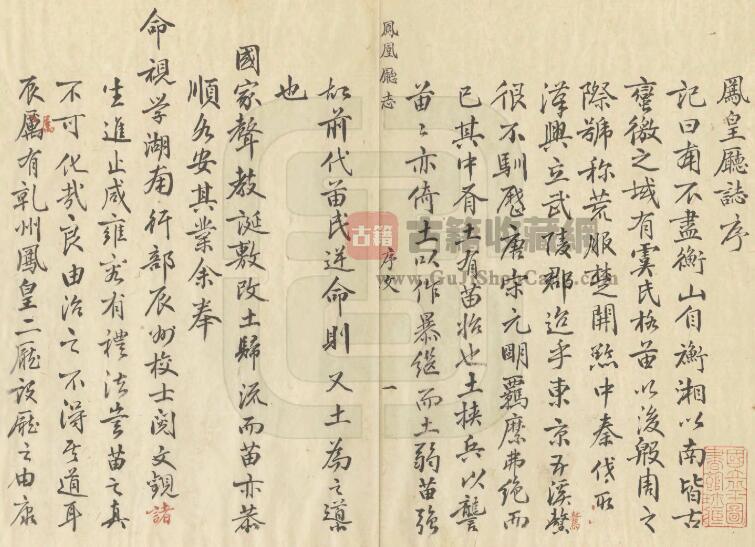 鳳皇廳誌序
記曰南不盡衡山自衡湘以南皆古
蠻徼之域有虞氏格苗以後殷周之
際號稱荒服楚開黔中秦伐所
漢興立武陵郡迨乎東京五溪鰲
驁
很不馴歷唐宋元明羈縻弗絶而
已其中吾土有苗怡也土挾兵以讐
苗苗亦倚土以作暴繼而土弱苗強
鳳凰廳志
序文
一
故前代苗民逆命則又土為之導
也
國家聲教誕敷改土歸流而苗亦恭
順各安其業余奉
命視學湖南行部辰州校士閲文覩諸
生進止咸雍容有禮法豈苗之真
不可化哉良由治之不得其道耳
辰屬有乾州鳳皇二廳設廳之由康
属
古籍
古籍收藏網
www.GujiShouCang.com